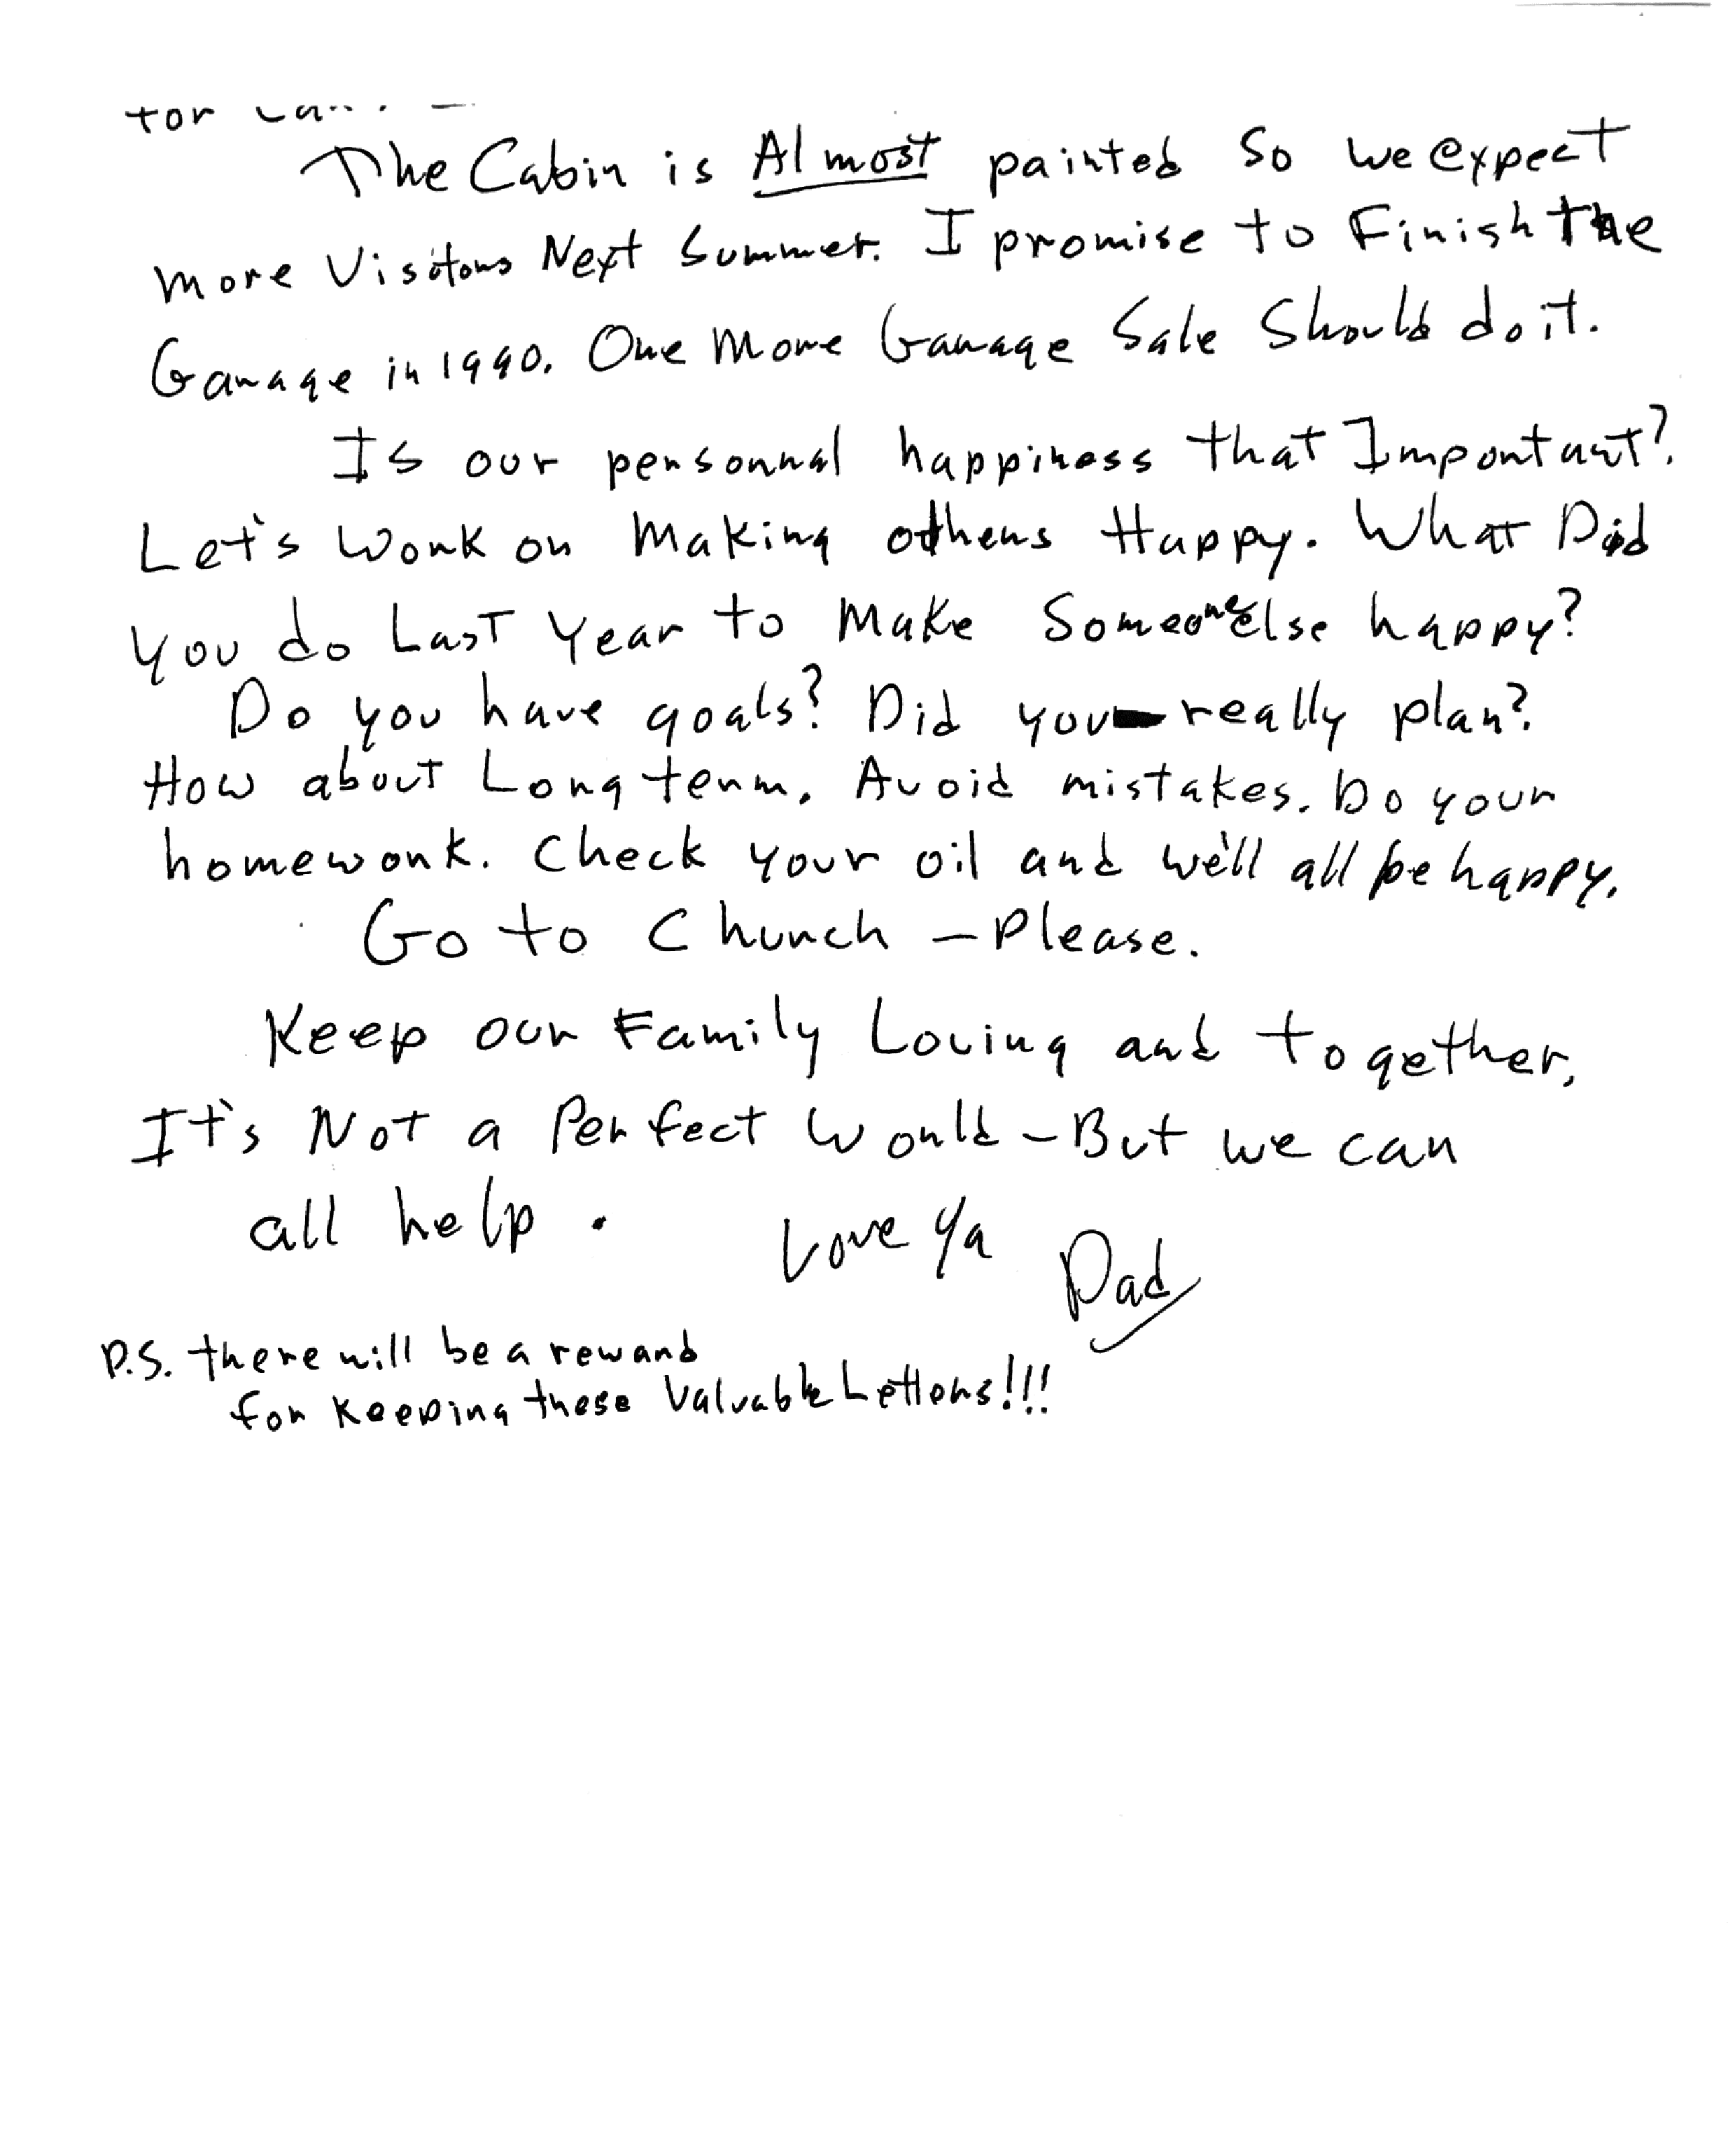 for
The Cabin is Almost painted so we expect
more Visitors Next Summer. I promise to Finish the
Garage in 1990. One More Garage Sale Should do it.
Is our personnal happiness that Important?
Let's Work on Making others Happy. What Did
you do Last Year to Make Someone else happy?
Do you have goals? Did you really plan?
How about Long term. Avoid mistakes. Do your
homework. Check your oil and we'll all be happy.
Go to Church - Please.
Keep our Family Loving and together,
It's Not a Perfect World - But we can
all help. Love Ya Dad
P.S. there will be a reward
for Keeping these Valuable Letters!!!